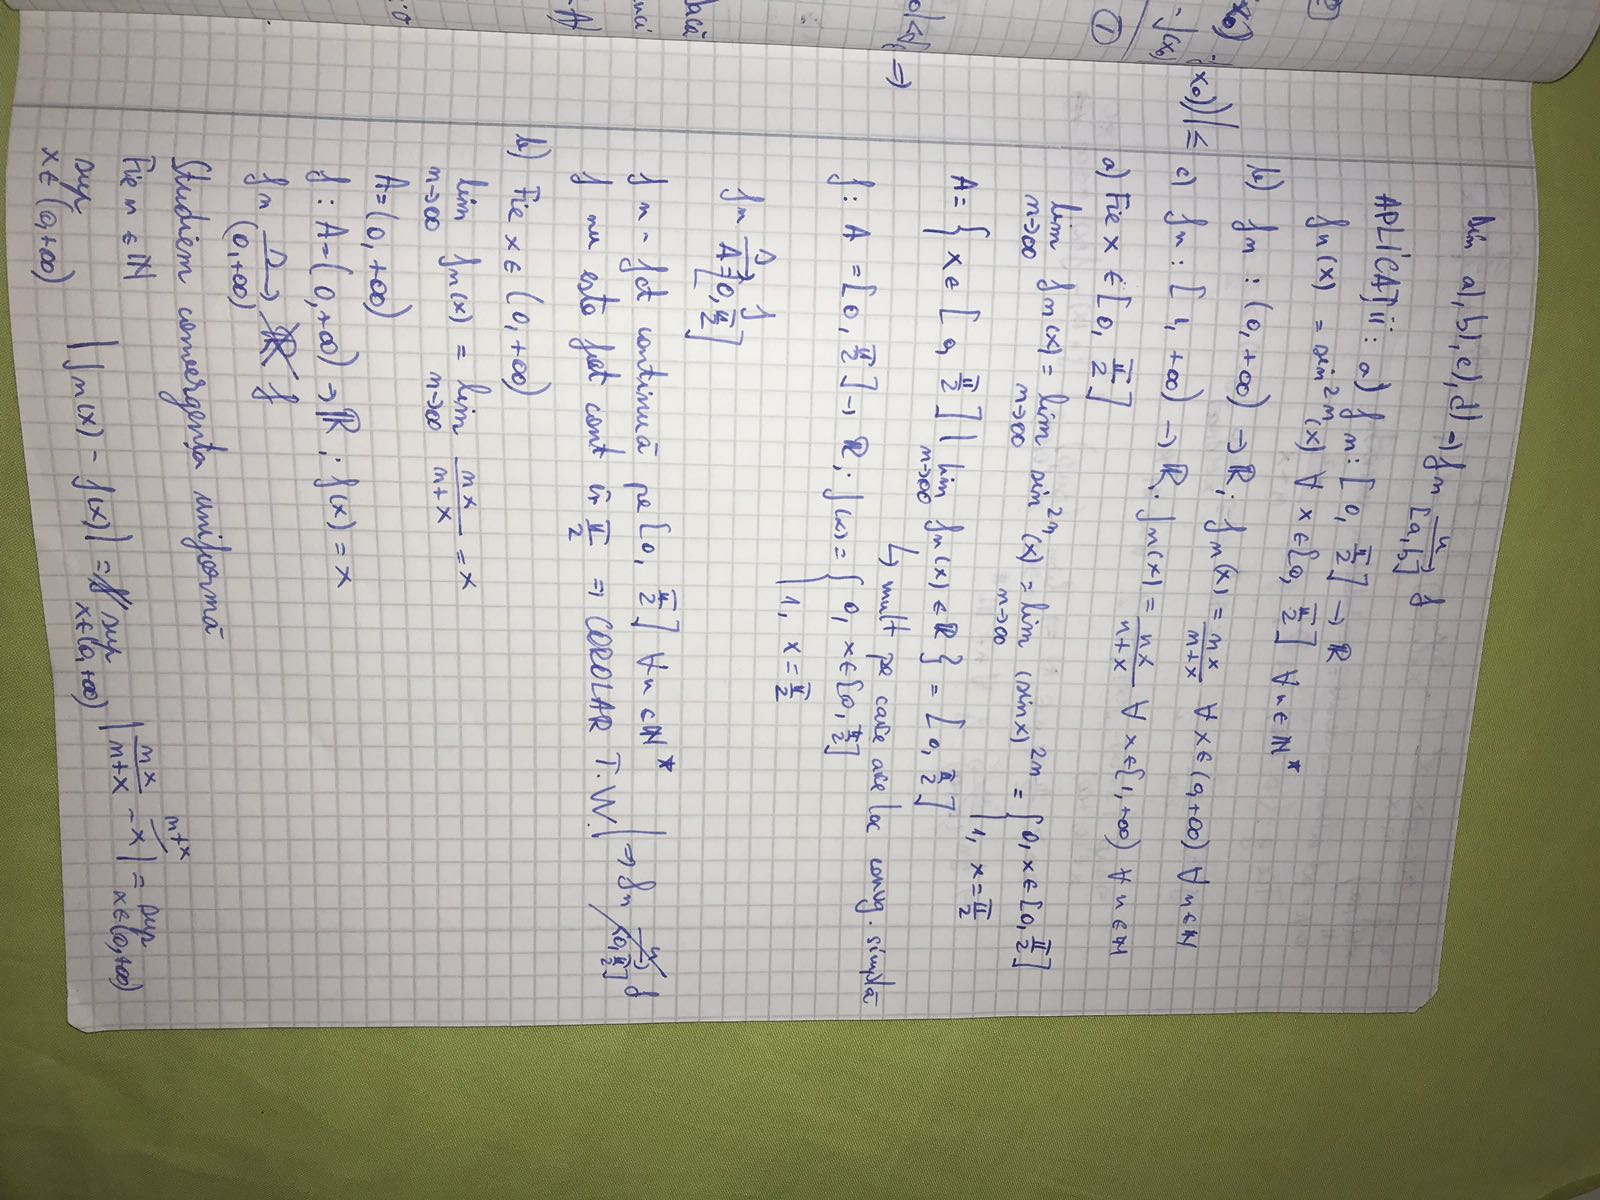 Din a), b), c), d) ⇒ fn →u [a,b] f
APLICAȚII: a) fn : [0, π/2] → R
fn(x) = sin^2n (x) ∀ x ∈ [0, π/2] ∀ n ∈ N*
b) fn : (0, +∞) → R; fn(x) = nx/(n+x) ∀ x ∈ (0, +∞) ∀ n ∈ N
c) fn : [1, +∞) → R; fn(x) = nx/(n+x) ∀ x ∈ [1, +∞) ∀ n ∈ N
a) Fie x ∈ [0, π/2]
lim n→∞ fn(x) = lim n→∞ sin^2n (x) = lim n→∞ (sin x)^2n = { 0, x ∈ [0, π/2] 1, x = π/2
A = { x ∈ [0, π/2] | lim n→∞ fn(x) ∈ R } = [0, π/2]
↳ mult pe care are loc convg. simplă
f : A = [0, π/2] → R; f(x) = { 0, x ∈ [0, π/2] 1, x = π/2
fn →s A=[0, π/2] f
fn - fct continuă pe [0, π/2] ∀ n ∈ N*
f nu este fct cont în π/2 ⇒ COROLAR T.W. | ⇒ fn ↛u [0, π/2] f
b) Fie x ∈ (0, +∞)
lim n→∞ fn(x) = lim n→∞ nx/(n+x) = x
A = (0, +∞)
f : A = (0, +∞) → R; f(x) = x
fn →s (0, +∞) f
Studiem convergența uniformă
Fie n ∈ N
sup x∈(0,+∞) |fn(x) - f(x)| = sup x∈(0,+∞) | nx/(n+x) - n+x/x | = sup x∈(0,+∞)
x0)| ≤
- f(x0)
①
⇒
dacă